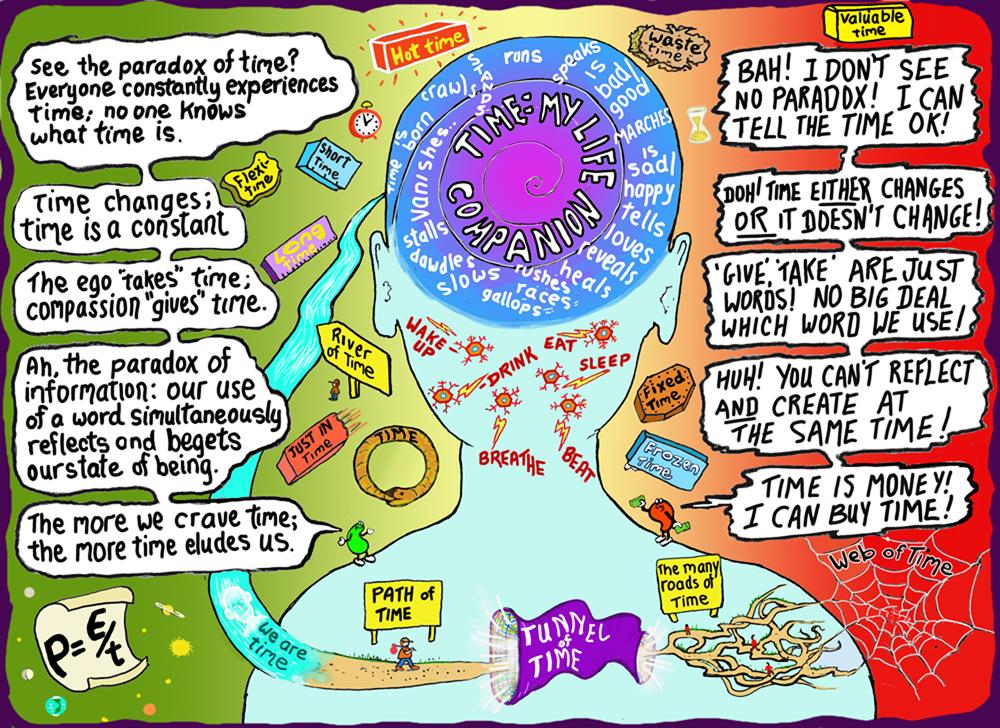 Hot time
waste
time
Valuable
time
See the paradox of time?
Everyone constantly experiences
time; no one knows
what time is.
Time changes;
time is a constant
The ego "takes" time;
compassion "gives" time.
Ah, the paradox of
information: our use
of a word simultaneously
reflects and begets
our state of being.
The more we crave time;
the more time eludes us.
BAH! I DON'T SEE
NO PARADOX! I CAN
TELL THE TIME OK!
DOH! TIME EITHER CHANGES
OR IT DOESN'T CHANGE!
'GIVE,' 'TAKE' ARE JUST
WORDS! NO BIG DEAL
WHICH WORD WE USE!
HUH! YOU CAN'T REFLECT
AND CREATE AT
THE SAME TIME!
TIME IS MONEY!
I CAN BUY TIME!
Flexi
time
Short
Time
Long
time
River
of Time
JUST IN
Time
TIME
Fixed
Time
Frozen
Time
TIME: MY LIFE COMPANION
time is born
crawls
STANDS
runs
speaks
is bad/
good
MARCHES
is
sad/
happy
tells
loves
reveals
heals
rushes
races
gallops
slows
dawdles
stalls
vanishes..
WAKE-
UP
DRINK
EAT
SLEEP
BREATHE
BEAT
PATH of
TIME
The many
roads of
Time
TUNNEL
of
TIME
We are
time
Web of Time
P=E/t